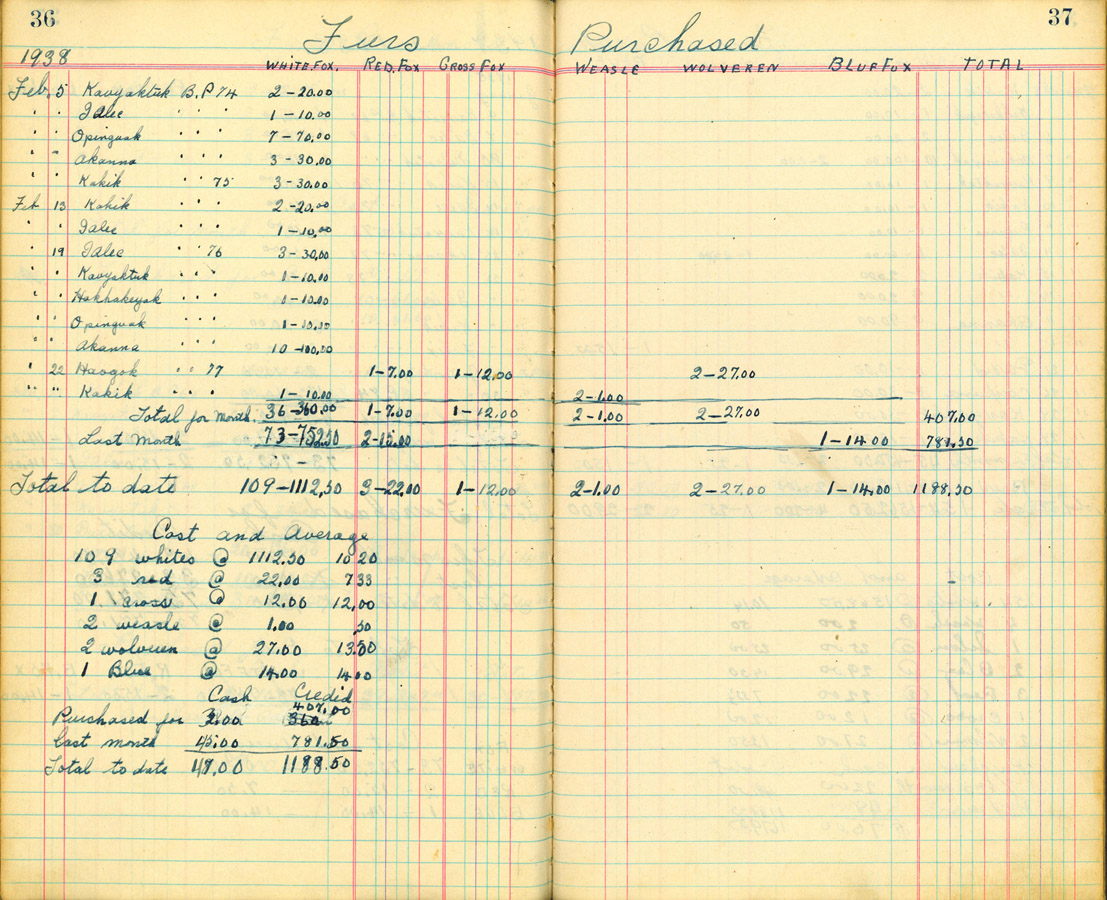 36
37
Furs Purchased
1938
WHITE.FOX. RED.FOX GROSS FOX WEASLE WOLVEREN BLUFFOX TOTAL
Feb. 5 Kavyaktuk B.P 74 2-20.00
" " Ialec " " " 1-10.00
Opinguak " " " 7-70.00
" " Akanna " " " 3-30.00
" " Kakik " " 75 3-30.00
Feb 13 Kakik " " " 2-20.00
" " Ialec " " " 1-10.00
" 19 Ialec " " 76 3-30.00
" " Kavyaktuk " " " 1-10.00
" " Hakhakeyak " " " 1-10.00
" " Opinguak " " " 1-10.00
" " Akanna " " " 10-100.00
" 22 Havgok " " 77 1-7.00 1-12.00 2-27.00
" " Kakik " " " 1-10.00 2-1.00
Total for Month. 36-360.00 1-7.00 1-12.00 2-1.00 2-27.00 407.00
Last Month 73-752.50 2-15.00 1-14.00 781.50
Total to date 109-1112.50 3-22.00 1-12.00 2-1.00 2-27.00 1-14.00 1188.50
Cost and Average
109 whites @ 1112.50 10 20
3 red @ 22.00 7 33
1 cross @ 12.00 12.00
2 weasle @ 1.00 .50
2 wolveren @ 27.00 13.50
1 Blue @ 14.00 14.00
Cash Credid
407.00
Purchased for 2.00 360
Last month 45.00 781.50
Total to date 47.00 1188.50